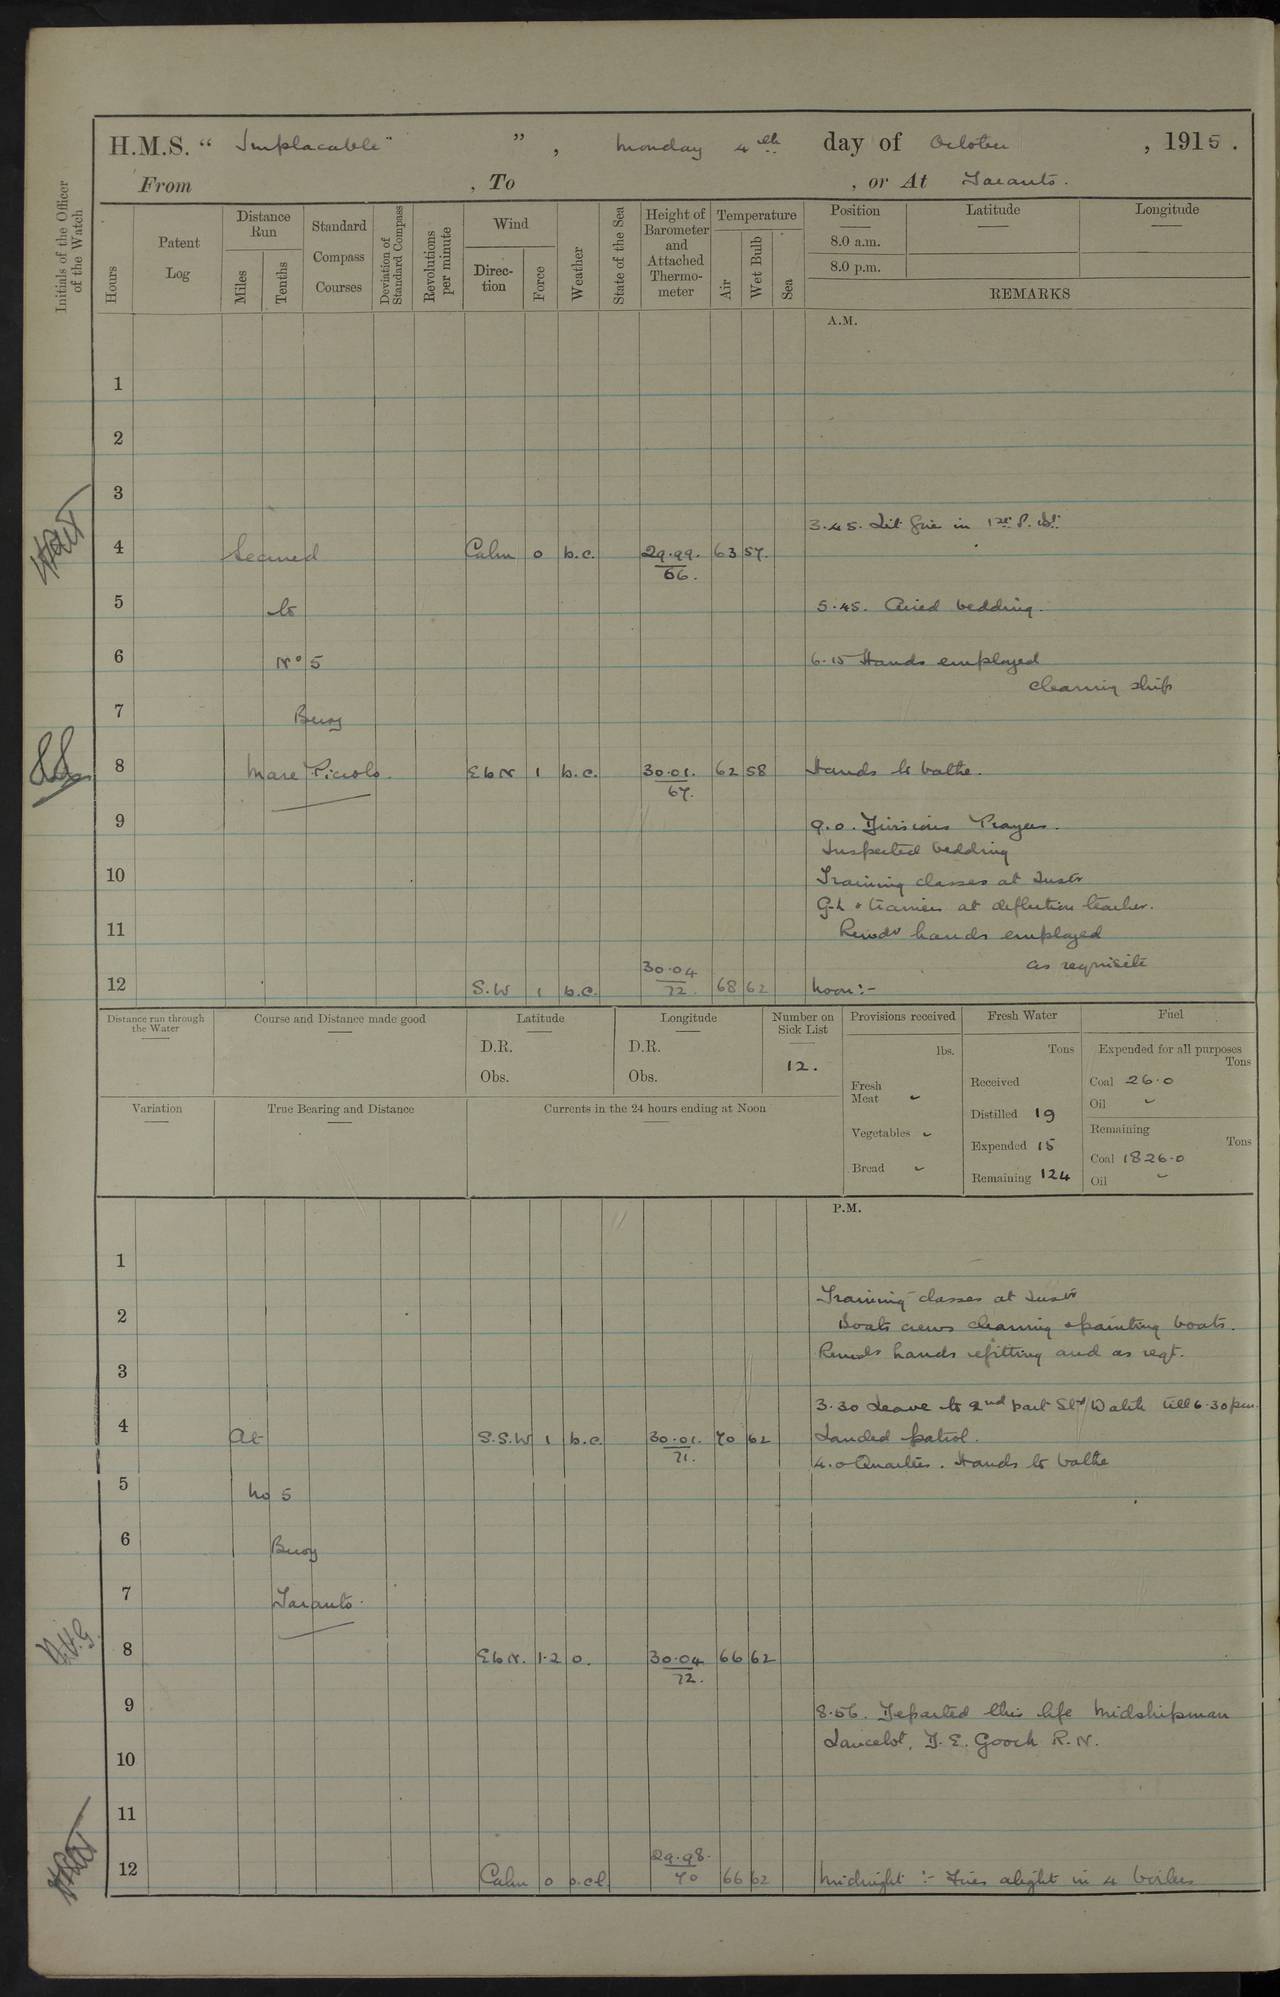 H.M.S. “ Implacable ” , Monday 4th day of October , 1915 .
From , To , or At Taranto.
Initials of the Officer of the Watch
Hours
Patent Log
Distance Run
Miles
Tenths
Standard Compass Courses
Deviation of Standard Compass
Revolutions per minute
Wind
Direction
Force
Weather
State of the Sea
Height of Barometer and Attached Thermometer
Temperature
Air
Wet Bulb
Sea
Position
Latitude
Longitude
8.0 a.m.
8.0 p.m.
REMARKS
A.M.
1
2
3
3.45. Lit fire in 1st P. Bt.
4 Secured Calm 0 b.c. 29.99. 63 57.
66.
5 to 5.45. Aired bedding.
6 No 5 6.15 Hands employed
cleaning ship
7 Buoy
8 Mare Piccolo. EbN 1 b.c. 30.01. 62 58 Hands to bathe.
67.
9 9.0. Divisions Prayers.
Inspected bedding
10 Training classes at Instn
G-L & trainers at deflection teacher.
11 Remdr hands employed
as requisite
12 S.W 1 b.c. 30.04 68 62 Noon:-
72.
Distance run through the Water
Course and Distance made good
Latitude
D.R.
Obs.
Longitude
D.R.
Obs.
Number on Sick List
12.
Provisions received
lbs.
Fresh Meat -
Vegetables -
Bread -
Fresh Water
Tons
Received
Distilled 19
Expended 15
Remaining 124
Fuel
Expended for all purposes
Tons
Coal 26.0
Oil -
Remaining
Tons
Coal 1826.0
Oil -
Variation
True Bearing and Distance
Currents in the 24 hours ending at Noon
P.M.
1
Training classes at Instn
2 Boats crews cleaning & painting boats.
Remdr hands refitting and as reqt.
3
3.30 Leave to 2nd part Std Watch till 6.30 pm.
4 At S.S.W 1 b.c. 30.01. 70 62 Landed patrol.
71.
4.0 Quarters. Hands to bathe
5 No 5
6 Buoy
7 Taranto.
8 EbN. 1-2 o. 30.04 66 62
72.
9 8.56. Departed this life Midshipman
Lancelot, D. E. Gooch R.N.
10
11
12 Calm 0 o.cl. 29.98. 66 62 Midnight :- Fires alight in 4 boilers
70